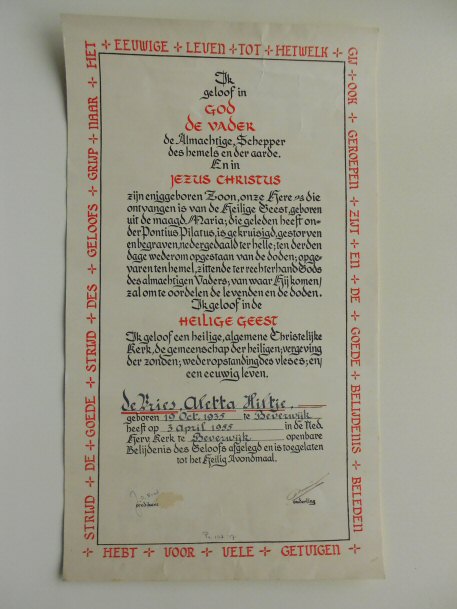 HET ✢ EEUWIGE ✢ LEVEN ✢ TOT ✢ HETWELK ✢
GIJ ✢ OOK ✢ GEROEPEN ✢ ZIJT ✢ EN ✢ DE ✢ GOEDE ✢ BELIJDENIS ✢ BELEDEN
✢ HEBT ✢ VOOR ✢ VELE ✢ GETUIGEN ✢
STRIJD ✢ DE ✢ GOEDE ✢ STRIJD ✢ DES ✢ GELOOFS ✢ GRIJP ✢ NAAR ✢
Ik
geloof in
GOD
DE VADER
de Almachtige, Schepper
des hemels en der aarde.
En in
JEZUS CHRISTUS
zijn eniggeboren Zoon, onze Here die
ontvangen is van de Heilige Geest, geboren
uit de maagd Maria; die geleden heeft on-
der Pontius Pilatus, is gekruisigd, gestorven
en begraven, nedergedaald ter helle; ten derden
dage wederom opgestaan van de doden; opge-
varen ten hemel, zittende ter rechterhand Gods
des almachtigen Vaders; van waar Hij komen
zal om te oordelen de levenden en de doden.
Ik geloof in de
HEILIGE GEEST
Ik geloof een heilige, algemene Christelijke
Kerk, de gemeenschap der heiligen; vergeving
der zonden; wederopstanding des vleses; en
een eeuwig leven.
de Vries, Aletta Hiltje,
geboren 19 Oct. 1935 te Beverwijk
heeft op 3 April 1955 in de Ned.
Herv Kerk te Beverwijk openbare
Belijdenis des Geloofs afgelegd en is toegelaten
tot het Heilig Avondmaal.
predikant
ouderling